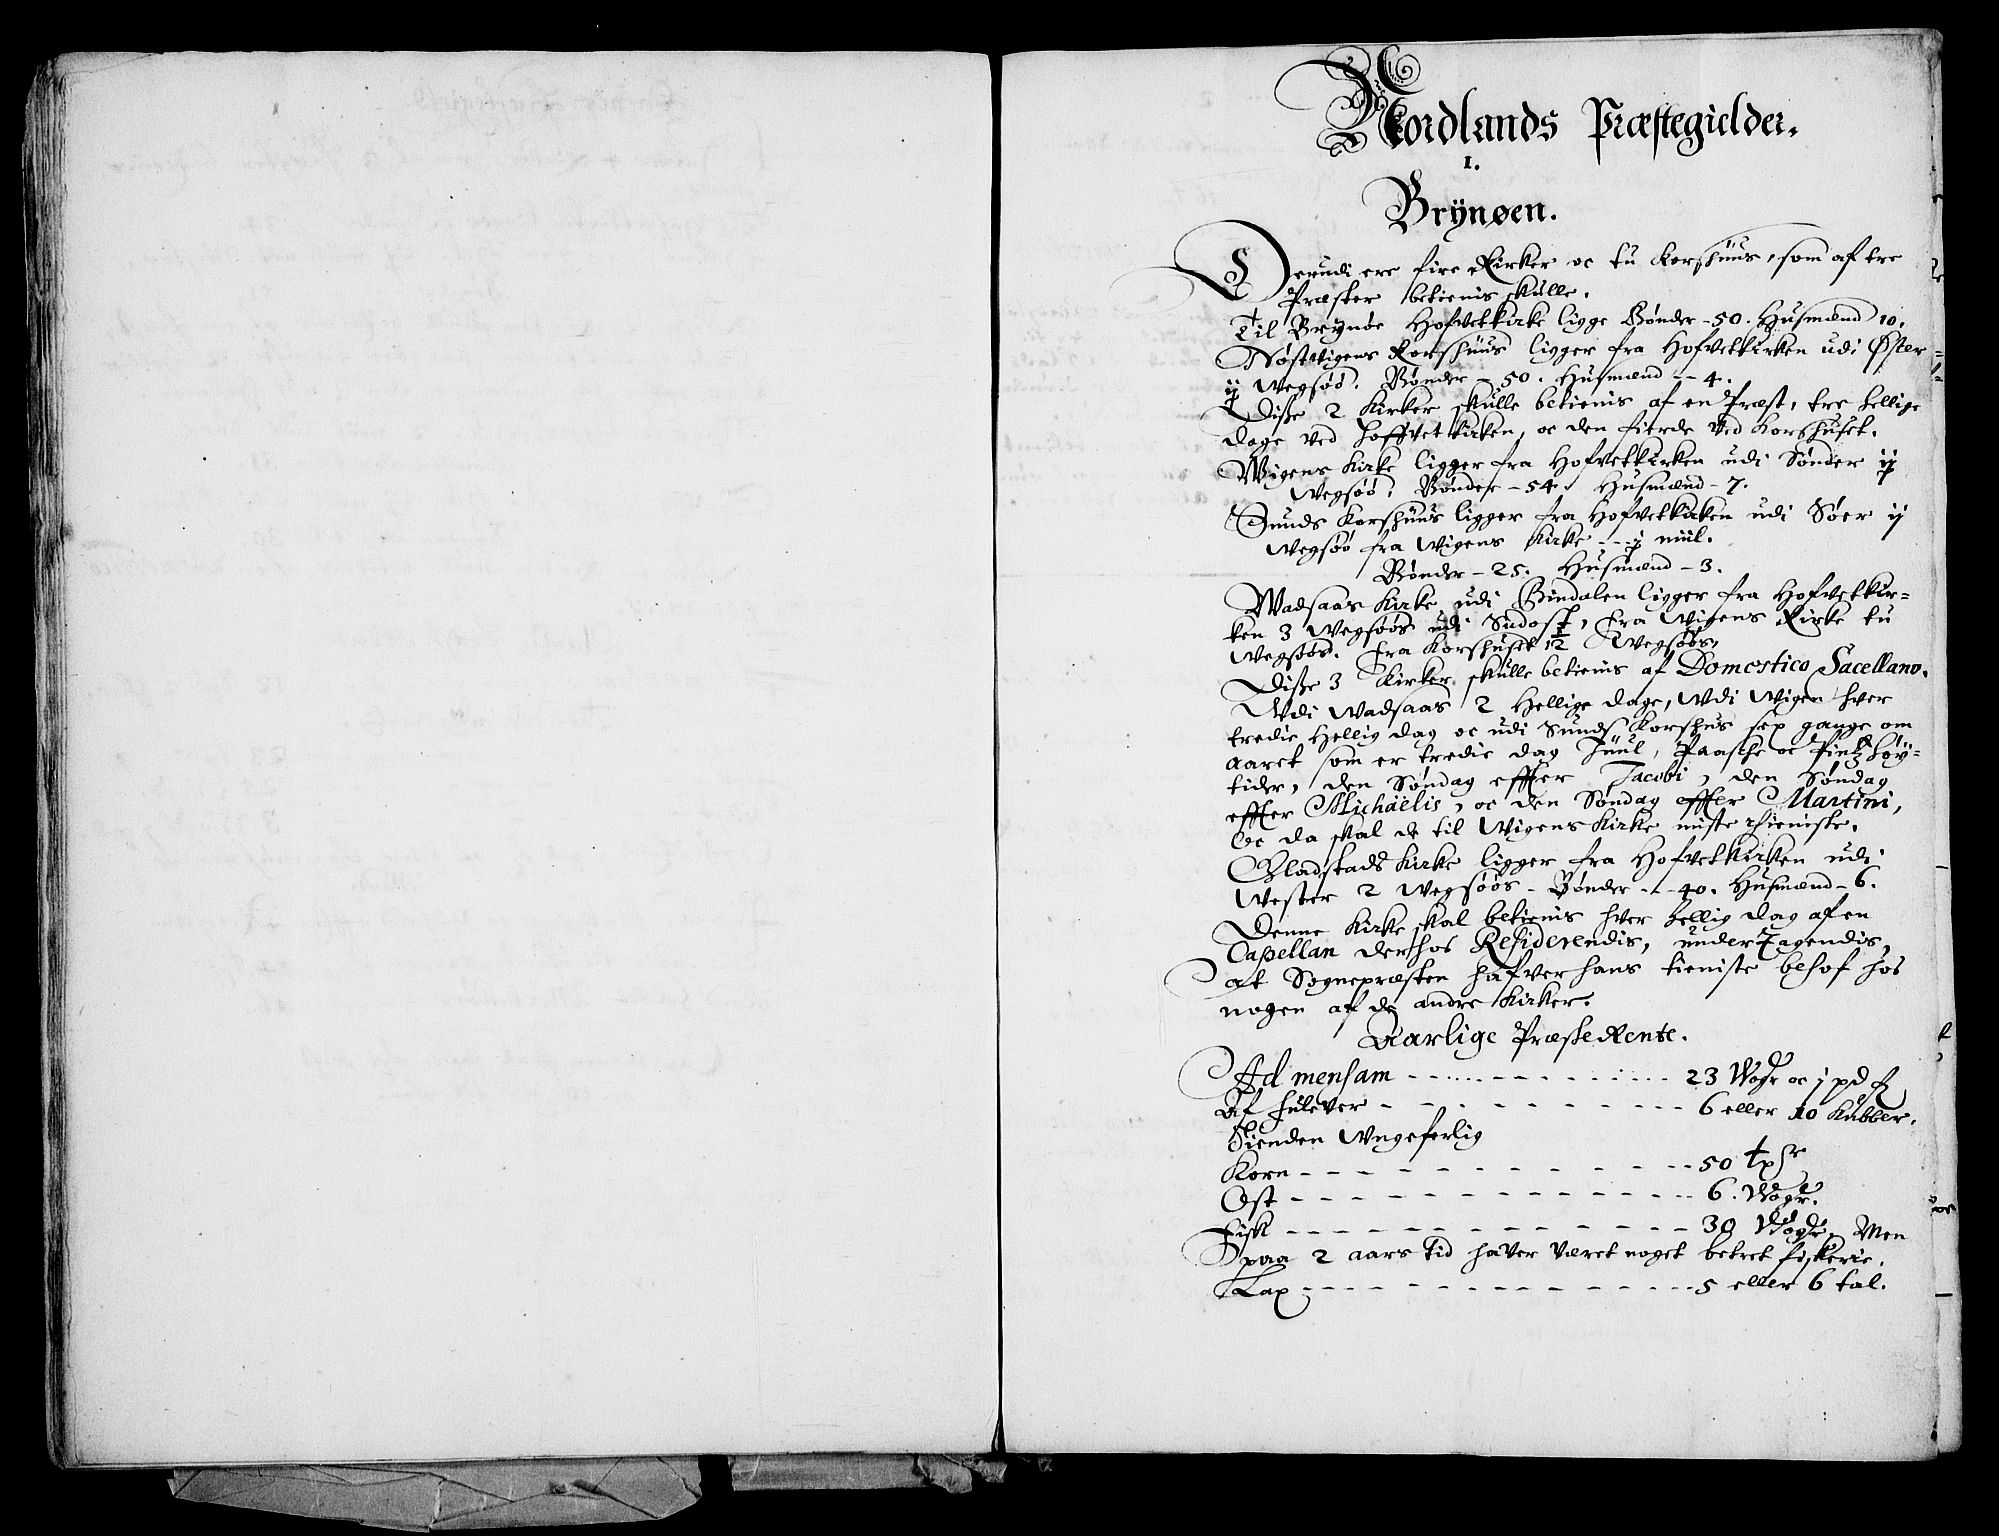 Nordlands Præstegielder.
1.
Brÿnøen.
Derudi ere fire Kirker oc tu Korshuus, som af tre
Præster betienis skulle.
Til Brÿnøe Hofvetkirke ligge Bønder - 50. Husmænd 10.
Nøstwigens Korshuus ligger fra Hofvetkirken udi Øster
ij wegsøö. Bønder - 50. Husmænd - 4.
Disse 2 Kirker skulle betienis af en Præst, tre hellige
dage ved hoffvetkirken, oc den fierde ved Korshuset.
Wigens Kirke ligger fra Hofvetkirken udi Sønder ij
wegsøö. Bønder - 54. Husmænd - 7.
Sunds Korshuus ligger fra Hofvetkirken udi Søer ij
wegsøö fra Wigens Kirke - - j miil.
Bønder - 25. Husmænd - 3.
Wadsaas Kirke udi Bindalen ligger fra Hofvetkir-
ken 3 wegsøös udi Sudost, fra Wigens Kirke tu
wegsøös. fra Korshuset 1½ wegsøös,
Disse 3 Kirker skulle betienis af Domestico Sacellano.
Udi Wadsaas 2 Hellige dage, Wdi Wigen hver
tredie Hellig dag oc udi Sunds Korshus sex gange om
aaret som er tredie dag Juul, Paasche oc Pintz høy-
tider, den Søndag effter Jacobi, den Søndag
effter Michäelis, oc den Søndag effter Martini,
Oc da skal de til Wigens Kirke miste thieniste.
Bladstads Kirke ligger fra Hofvetkirken udi
Wester 2 wegsøös - Bønder - - 40. Husmænd - 6.
Denne Kirke skal betienis hver hellig dag af en
Capellan derhos Residerendis, undertagendis,
at Sognepræsten hafver hans tieniste behof hos
nogen af de andre Kirker.
Aarlige Præste Rente.
Ad mensam - - - - - - 23 Woger oc j pd f
Af hulever - - - - - - 6 eller 10 Kubber.
Tienden Ungeferlig
Korn - - - - - - 50
Ost - - - - - - 6. Woger.
Fisk - - - - - - 30 Woger, Men
paa 2 aars tid haver været noget betret fiskerie.
Lax - - - - - - 5 eller 6 tal.